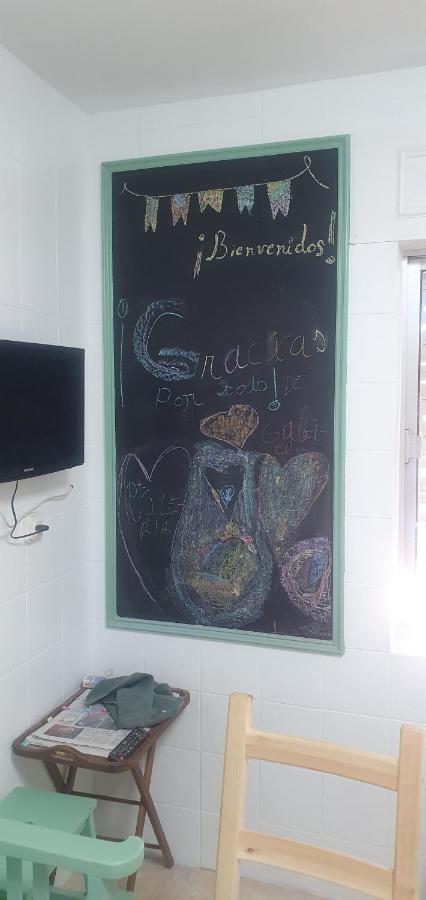 ¡Bienvenidos!
¡Gracias
Por todo! DE
DE
VALE
RIA